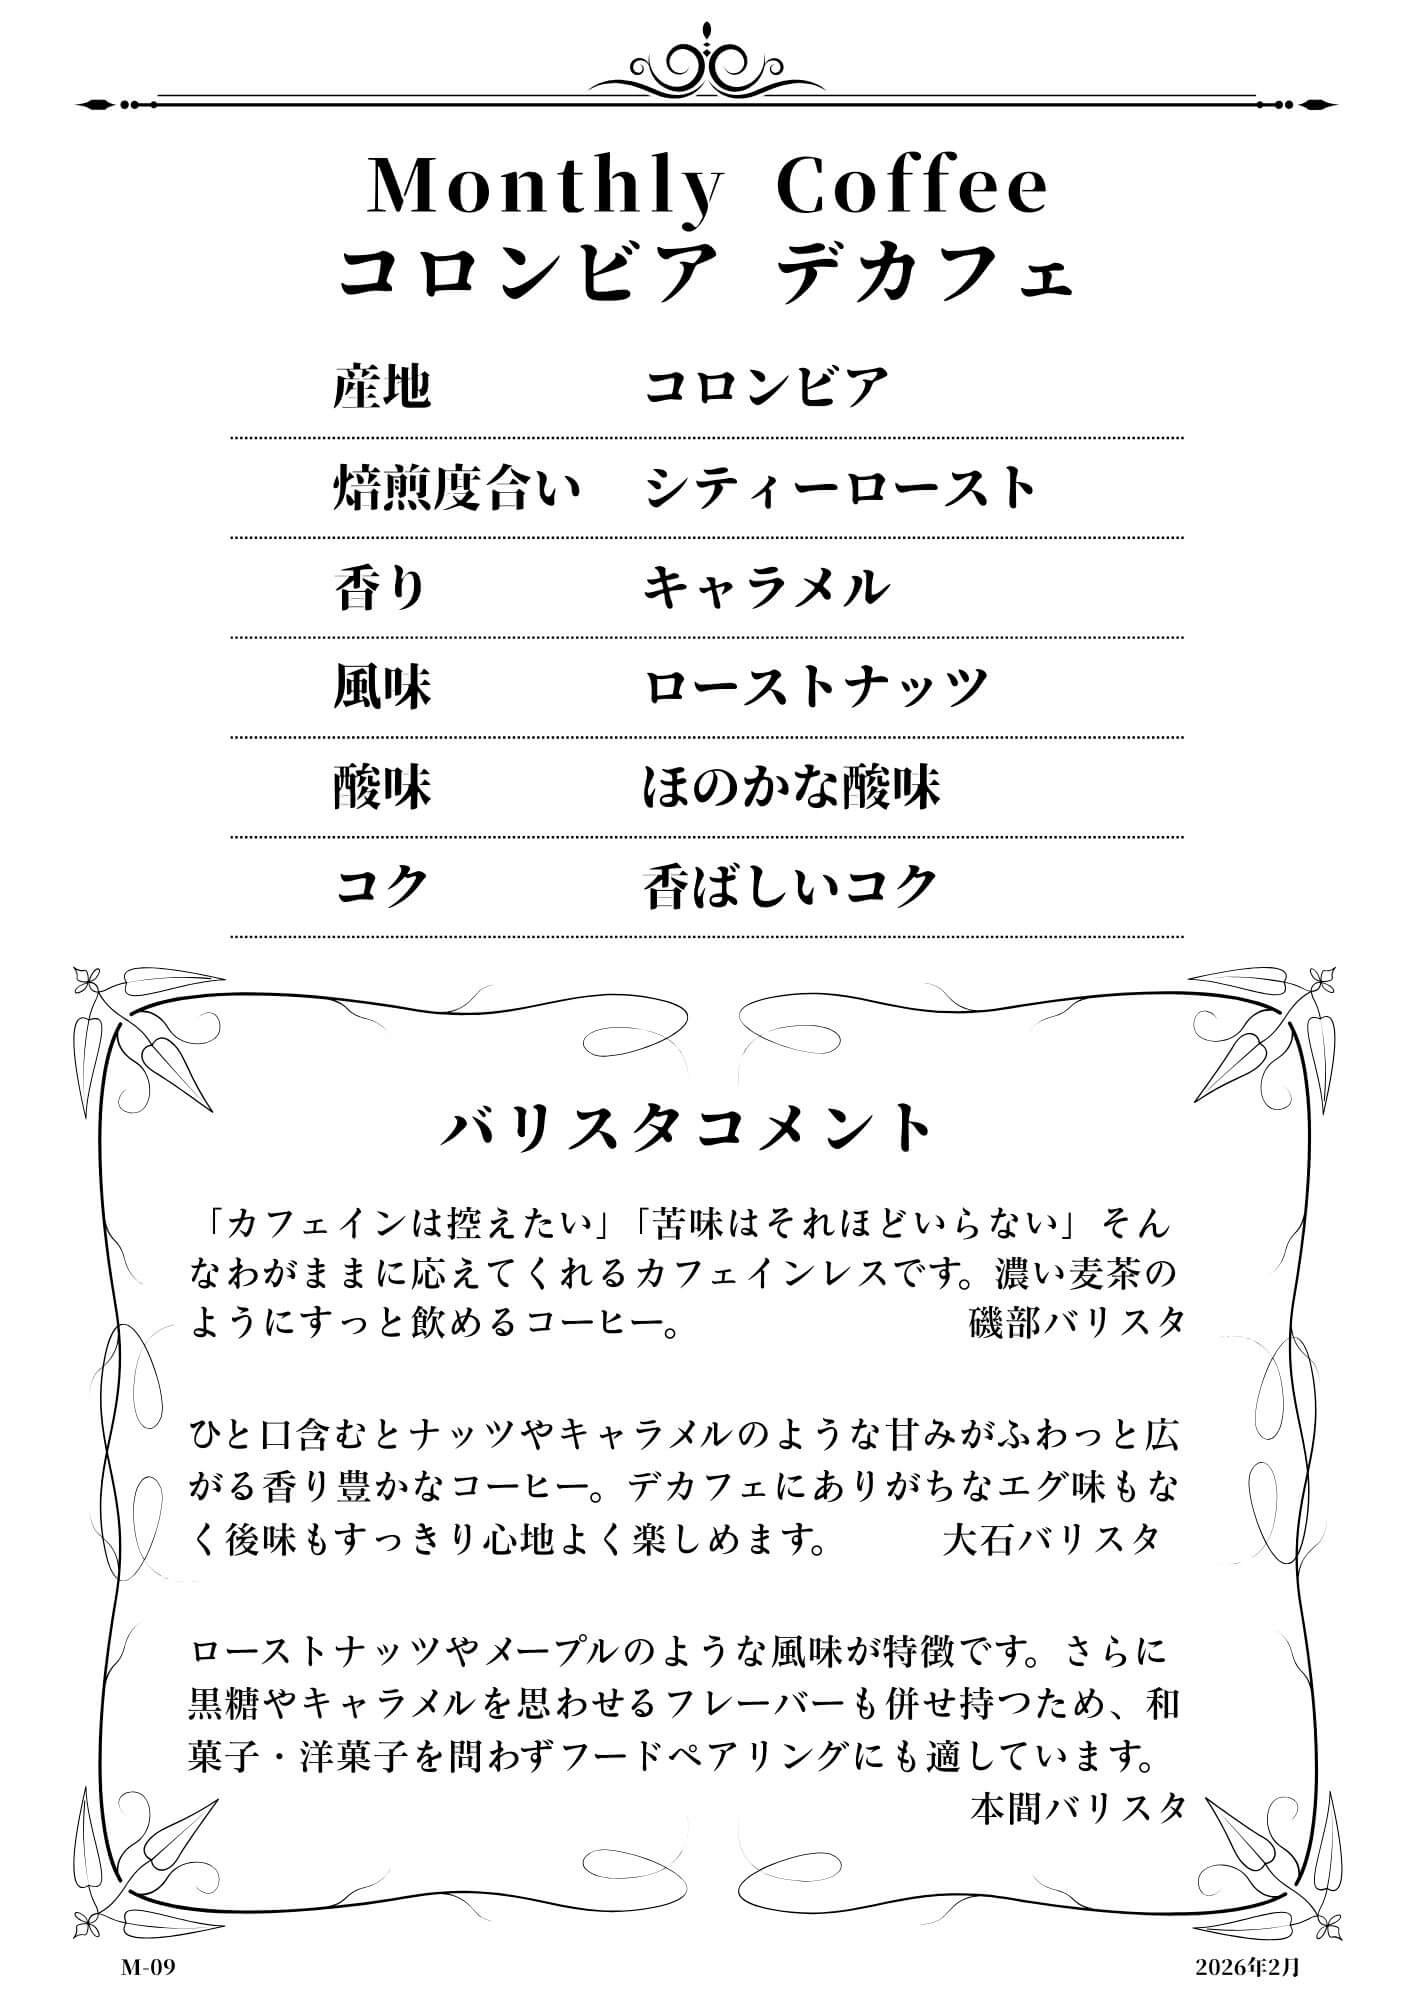 Monthly Coffee
コロンビア デカフェ
産地 コロンビア
焙煎度合い シティーロースト
香り キャラメル
風味 ローストナッツ
酸味 ほのかな酸味
コク 香ばしいコク
バリスタコメント
「カフェインは控えたい」「苦味はそれほどいらない」そん
なわがままに応えてくれるカフェインレスです。濃い麦茶の
ようにすっと飲めるコーヒー。 磯部バリスタ
ひと口含むとナッツやキャラメルのような甘みがふわっと広
がる香り豊かなコーヒー。デカフェにありがちなエグ味もな
く後味もすっきり心地よく楽しめます。 大石バリスタ
ローストナッツやメープルのような風味が特徴です。さらに
黒糖やキャラメルを思わせるフレーバーも併せ持つため、和
菓子・洋菓子を問わずフードペアリングにも適しています。
本間バリスタ
M-09 2026年2月